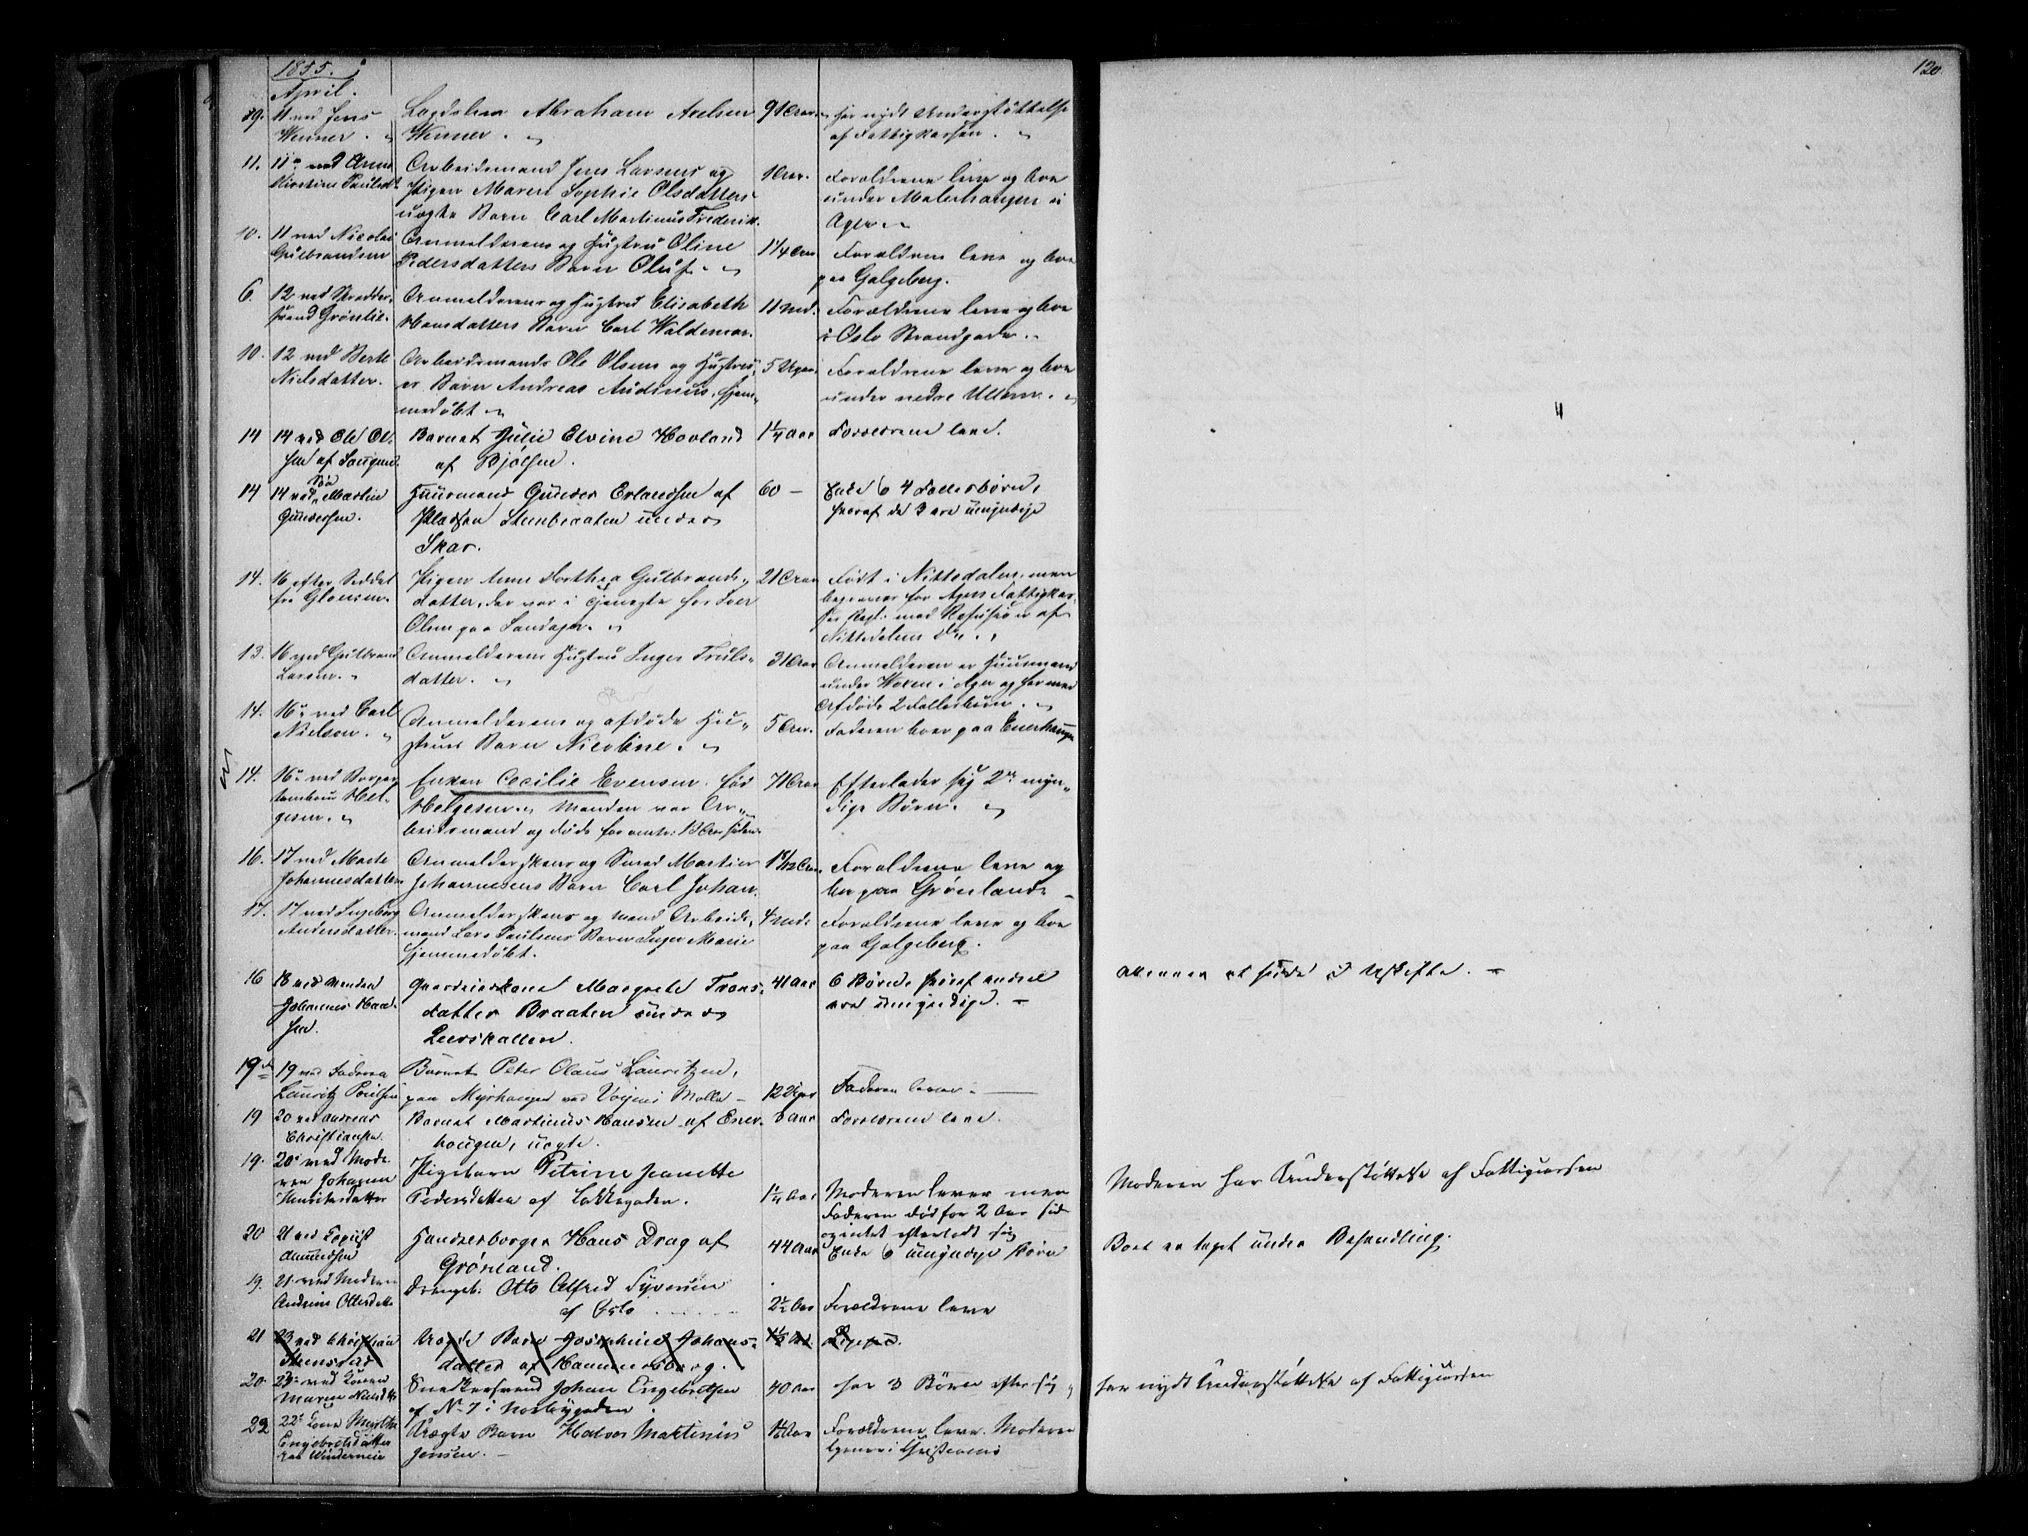 120
1855.
April.
11 ved Jens
Wenner.
Abraham Axelsen
Wenner.
91 Aar.
har nydt Understøttelse
af Fattigkassen.
11. 11 ved Anne
Kirstine Paulsdt.
Arbeidsmand Jens Larsens og
Pigen Maren Sophie Olsdatters
uægte Barn Carl Martinus Frederik.
1 Aar.
Forældrene leve og boe
under Malerhaugen i
Ager.
10. 11 ved Nicolai
Gulbrandsen
Anmelderens og Hustru Oline
Pedersdatters Barn Oluf.
1 1/4 Aar
Forældrene leve og boe
paa Galgeberg.
6. 12 ved
Grønlie.
Anmelderens og Hustrues Elisabeth
Hansdatters Barn Carl Waldemar.
11 Md.
Forældrene leve og boe
i Oslo Strandgade.
10. 12 ved Berte
Nielsdatter.
Arbeidsmands Ole Olsens og Hustrues
Barn Andreas Audinus, hjem-
medøbt
5 Uger.
Forældrene leve og boe
under nedre Ullern.
14 14 ved Ole Ol-
sen af Sougnet.
Barnet Julie Elvine Hovland
af Bjølsen.
1 1/4 Aar
Forældrene leve.
14 14 ved Martin
Gundersen.
Huusmand Gunder Erlandsen af
Pladsen Steenbraaten under
Skar.
60 –
Enke & 4 Fællesbørn,
hvoraf de 3 ere umyndige
14. 16 efter Seddel
fra
Pigen Anne Dorthea Gulbrands-
datter, der var i Tjeneste hos Iver
Olsen paa Sandager.
21 Aar
Født i Nittedalen, men
begraves for Agers Fattigkas-
ses Regn. med Refusion af
Nittedalens do.
13. 16 ved Gulbrand
Larsen.
Anmelderens Hustru Inger Truls-
datter.
31 Aar
Anmelderen er Huusmand
under Woxen i Ager og har med
Afdøde 2 Fællesbørn.
14. 16 ved Carl
Nielsen.
Anmelderens og afdøde Hu-
strues Barn Nicoline.
5 Aar.
Faderen boer paa Enerhaugen
14. 16 ved
Hel-
gesen.
Enken Cecilie Evensen, født
Helgesen. Manden var Ar-
beidsmand og døde for omtr. 13 Aar siden.
71 Aar
Efterlader sig 2 myn-
dige Børn.
16. 17 ved Marte
Johannesdatter
Anmelderskens og Smed Martin
Johannesens Barn Carl Johan
Forældrene leve og
boe paa Grønland.
17. 17 ved Ingeborg
Andersdatter.
Anmelderskens og Mand Arbeids-
mand Lars Paulsens Barn Inger Marie
hjemmedøbt.
4 Md.
Forældrene leve og boe
paa Galgeberg.
16 18 ved Manden
Johannes Han-
sen.
Gaardeierkone Margrete Trons-
datter Braaten under
Leerskallen.
41 Aar
6 Børn, hvoraf
ere umyndige. –
Manden at sidde i Uskifte. –
19 19 ved Faderen
Lauritz Poulsen
Barnet Peter Olaus Lauritzen,
paa Myrhaugen ved Vøiens Mølle –
12 Uger
Faderen lever.
19 20 ved Andreas
Christiansen.
Barnet Martinus Hansen af Ener-
hougen, uægte.
Aar
Forældrene leve.
19. 20 ved Mode-
ren Johanne
Henriksdatter
Pigebarn Petrine Jeanette
Pedersdatter af Lakkegaden.
Aar
Moderen lever men
Faderen død for 2 Aar sid
og intet efterladt sig
Moderen har Understøttelse af Fattigcassen
20 21 ved August
Amundsen
Handelsborger Hans Drag af
Grønland.
44 Aar
Enke & 6 umyndige Børn
Boet er taget under Behandling.
19. 21 ved Moderen
Andrine Ottersdtr
Drengeb. Otto Alfred Syversen
af Oslo
2 1/2 Aar
Forældrene leve
21 23 ved Christian
Uægte Barn Josephine Johans-
datter af Hammersborg.
Ligesaa.
20. 23 ved Konen
Maren
Snedkersvend Johan Engebretsen
af No 7 i Norbygaden
40 Aar
har 3 Børn efter sig
har nydt Understøttelse af Fattigcassen
22 22 Kone Marthe
Engebretsdatter
paa Vinderneie
Uægte Barn Halvor Martinius
Jensen. –
Aar
Forældrene leve. Moderen
tjener i Christiania